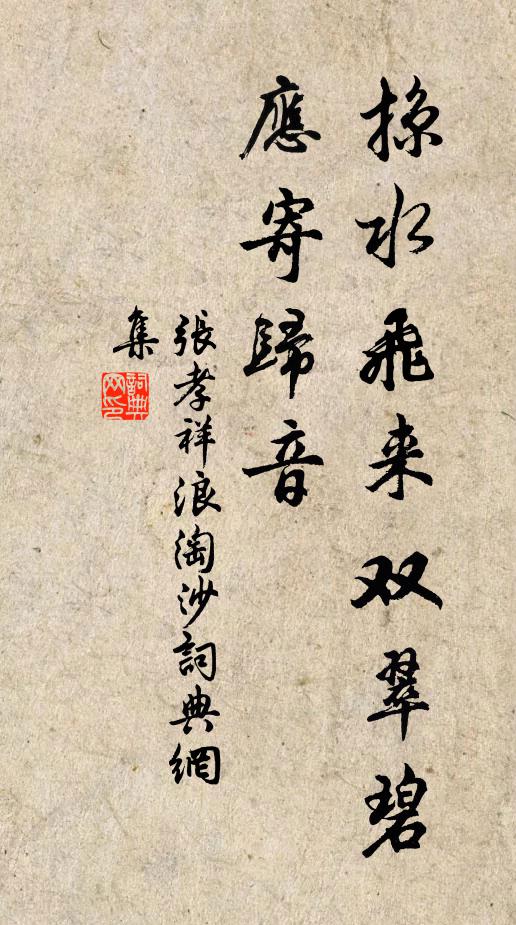 掠水飛来双翠碧
應寄歸音
張孝祥浪淘沙詞典網
集
詞典網印